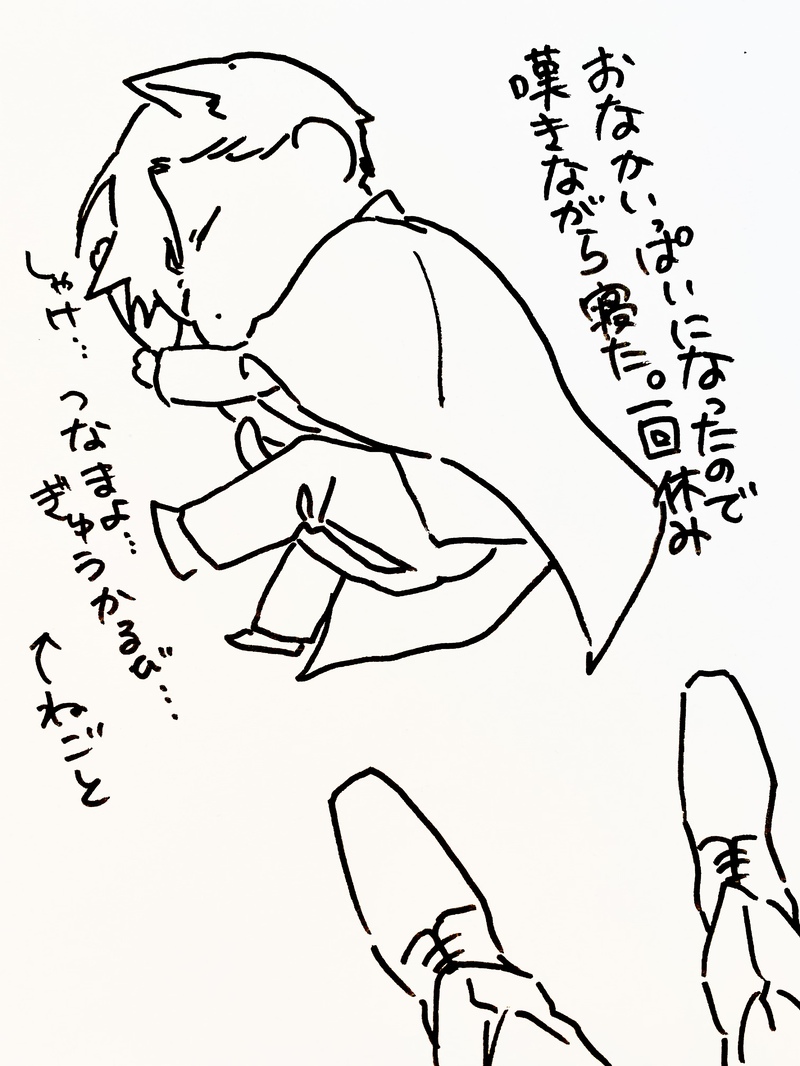 おなかいっぱいになったので
嘆きながら寝た。一回休み
しゃけ…
つなまよ…
ぎゅうかるび…
↑ねごと